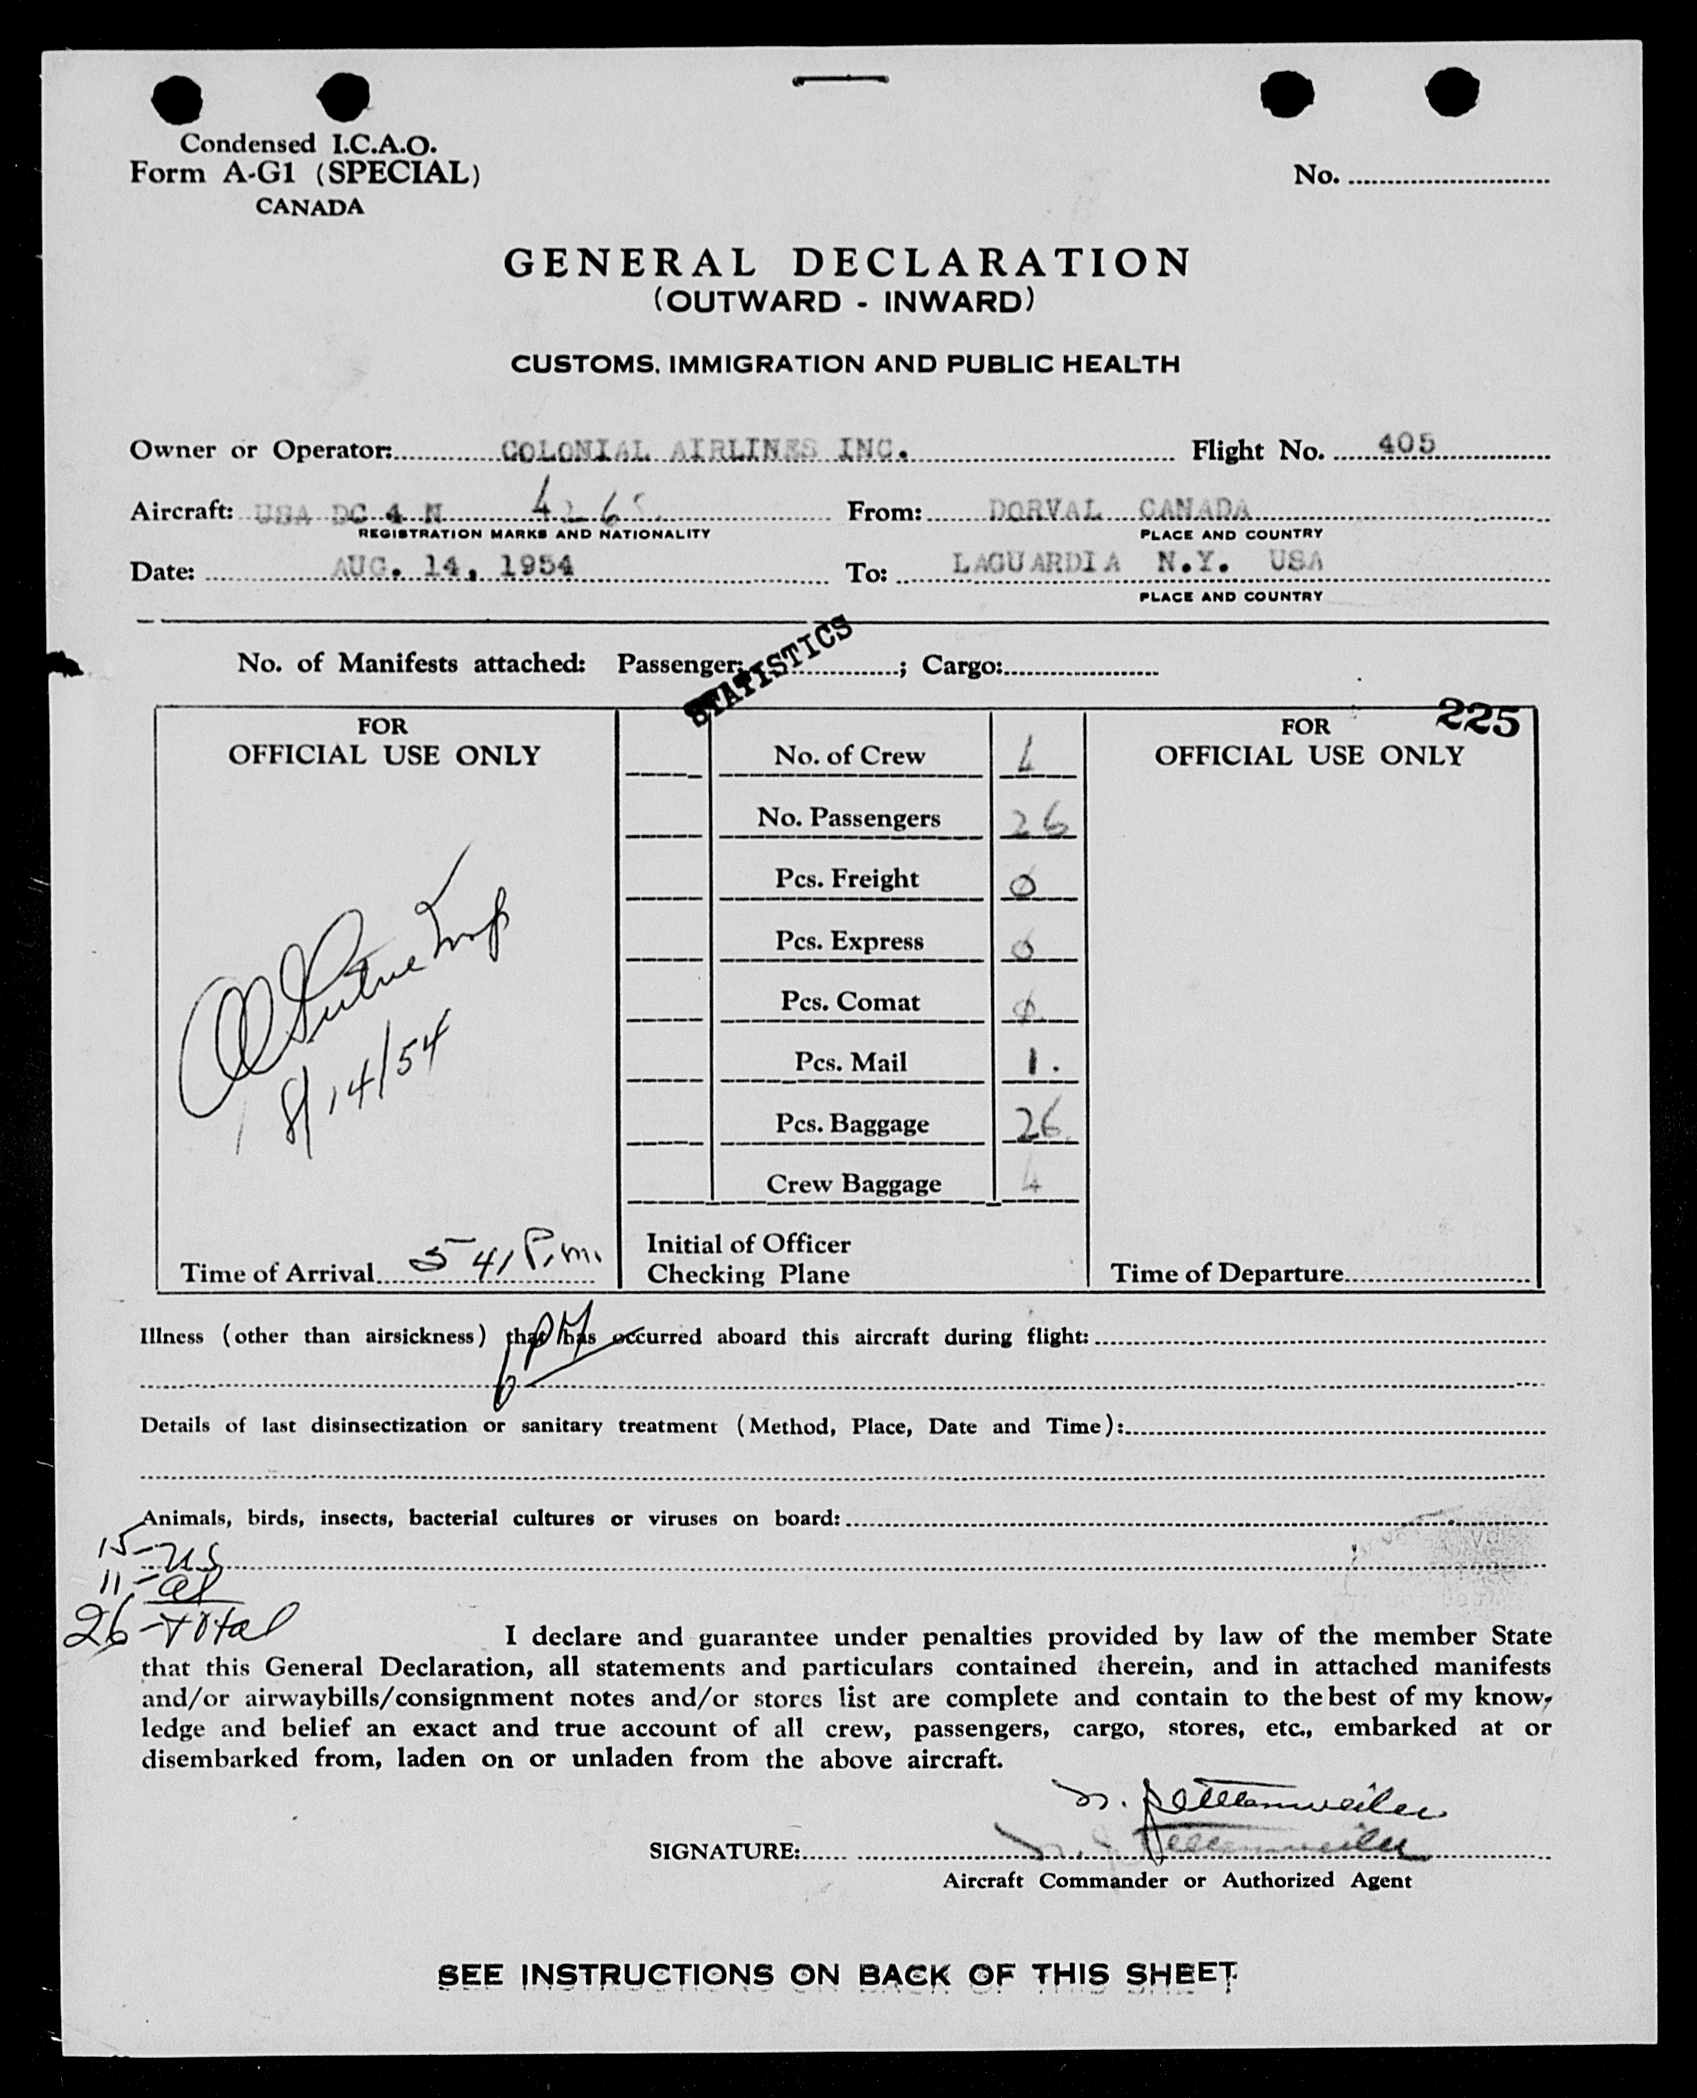 Condensed I.C.A.O.
Form A-G1 (SPECIAL)
CANADA
No.
GENERAL DECLARATION
(OUTWARD - INWARD)
CUSTOMS, IMMIGRATION AND PUBLIC HEALTH
Owner or Operator: COLONIAL AIRLINES INC. Flight No. 405
Aircraft: USA DC 4 N From: DORVAL CANADA
REGISTRATION MARKS AND NATIONALITY PLACE AND COUNTRY
Date: AUG. 14, 1954 To: LAGUARDIA N.Y. USA
PLACE AND COUNTRY
STATISTICS
No. of Manifests attached: Passenger: ; Cargo:
225
FOR
OFFICIAL USE ONLY
8/14/54
Time of Arrival 5 41 P.m.
No. of Crew
No. Passengers 26
Pcs. Freight 0
Pcs. Express 0
Pcs. Comat 0
Pcs. Mail 1.
Pcs. Baggage 26
Crew Baggage 4
Initial of Officer
Checking Plane
FOR
OFFICIAL USE ONLY
Time of Departure
Illness (other than airsickness) that has occurred aboard this aircraft during flight:
Details of last disinsectization or sanitary treatment (Method, Place, Date and Time):
Animals, birds, insects, bacterial cultures or viruses on board:
15-US
11-al
26-total
I declare and guarantee under penalties provided by law of the member State
that this General Declaration, all statements and particulars contained therein, and in attached manifests
and/or airwaybills/consignment notes and/or stores list are complete and contain to the best of my know-
ledge and belief an exact and true account of all crew, passengers, cargo, stores, etc., embarked at or
disembarked from, laden on or unladen from the above aircraft.
SIGNATURE:
Aircraft Commander or Authorized Agent
SEE INSTRUCTIONS ON BACK OF THIS SHEET